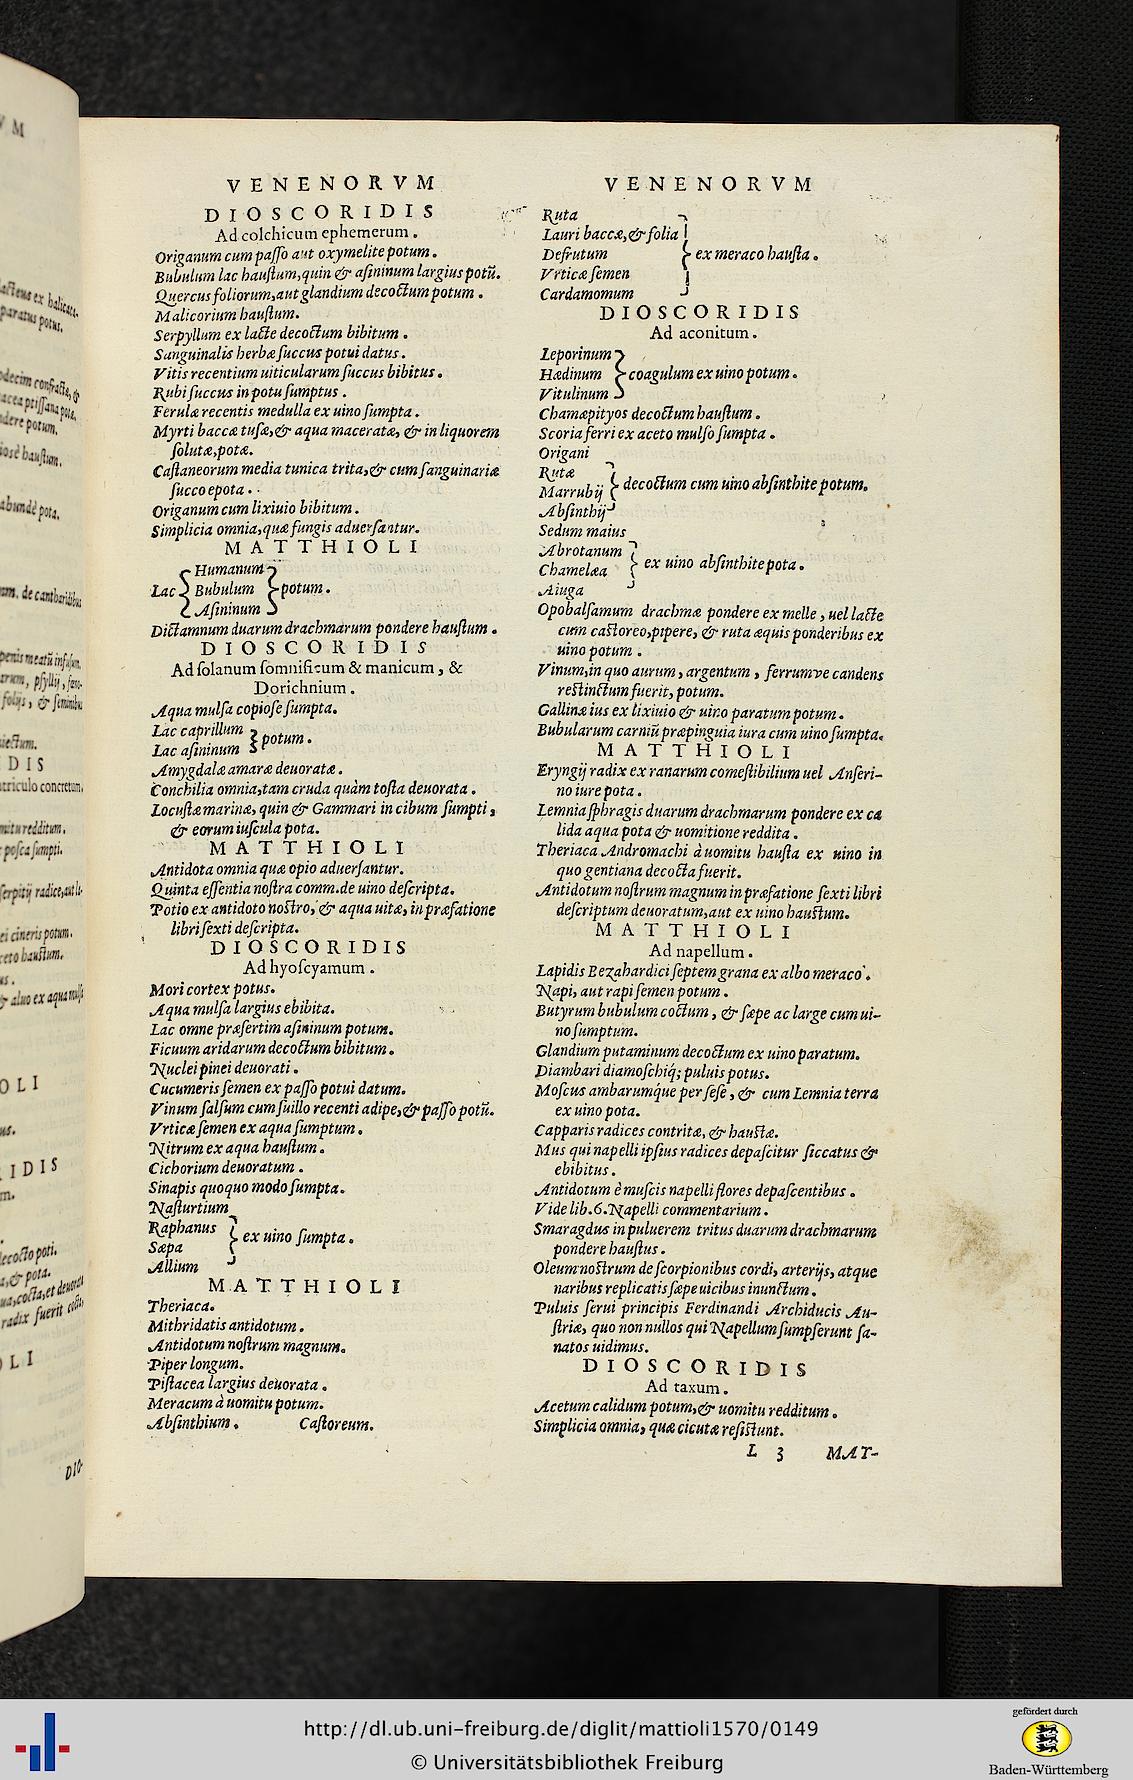 VENENORVM
DIOSCORIDIS
Ad colchicum ephemerum.
Origanum cum paſſo aut oxymelite potum.
Bubulum lac hauſtum, quin & aſininum largius potū.
Quercus foliorum, aut glandium decoctum potum.
Malicorium hauſtum.
Serpyllum ex lacte decoctum bibitum.
Sanguinalis herbæ ſuccus potui datus.
Vitis recentium uiticularum ſuccus bibitus.
Rubi ſuccus in potu ſumptus.
Ferulæ recentis medulla ex uino ſumpta.
Myrti baccæ tuſæ, & aqua maceratæ, & in liquorem
ſolutæ, potæ.
Caſtaneorum media tunica trita, & cum ſanguinariæ
ſucco epota.
Origanum cum lixiuio bibitum.
Simplicia omnia, quæ fungis aduerſantur.
MATTHIOLI
Humanum
Lac Bubulum potum.
Aſininum
Dictamnum duarum drachmarum pondere hauſtum.
DIOSCORIDIS
Ad ſolanum ſomnificum & manicum, &
Dorichnium.
Aqua mulſa copioſe ſumpta.
Lac caprillum
Lac aſininum potum.
Amygdalæ amaræ deuoratæ.
Conchilia omnia, tam cruda quàm toſta deuorata.
Locuſtæ marinæ, quin & Gammari in cibum ſumpti,
& eorum iuſcula pota.
MATTHIOLI
Antidota omnia quæ opio aduerſantur.
Quinta eſſentia noſtra comm. de uino deſcripta.
Potio ex antidoto noſtro, & aqua uitæ, in præfatione
libri ſexti deſcripta.
DIOSCORIDIS
Ad hyoſcyamum.
Mori cortex potus.
Aqua mulſa largius ebibita.
Lac omne præſertim aſininum potum.
Ficuum aridarum decoctum bibitum.
Nuclei pinei deuorati.
Cucumeris ſemen ex paſſo potui datum.
Vinum ſalſum cum ſuillo recenti adipe, & paſſo potū.
Vrticæ ſemen ex aqua ſumptum.
Nitrum ex aqua hauſtum.
Cichorium deuoratum.
Sinapis quoquo modo ſumpta.
Naſturtium
Raphanus ex uino ſumpta.
Sæpa
Allium
MATTHIOLI
Theriaca.
Mithridatis antidotum.
Antidotum noſtrum magnum.
Piper longum.
Piſtacea largius deuorata.
Meracum à uomitu potum.
Abſinthium. Caſtoreum.
VENENORVM
Ruta
Lauri baccæ, & folia
Defrutum ex meraco hauſta.
Vrticæ ſemen
Cardamomum
DIOSCORIDIS
Ad aconitum.
Leporinum
Hædinum coagulum ex uino potum.
Vitulinum
Chamæpityos decoctum hauſtum.
Scoria ferri ex aceto mulſo ſumpta.
Origani
Rutæ
Marrubij decoctum cum uino abſinthite potum.
Abſinthij
Sedum maius
Abrotanum
Chamelæa ex uino abſinthite pota.
Aiuga
Opobalſamum drachmæ pondere ex melle, uel lacte
cum caſtoreo, pipere, & ruta æquis ponderibus ex
uino potum.
Vinum, in quo aurum, argentum, ferrumve candens
reſtinctum fuerit, potum.
Gallinæ ius ex lixiuio & uino paratum potum.
Bubularum carniū præpinguia iura cum uino ſumpta.
MATTHIOLI
Eryngij radix ex ranarum comeſtibilium uel Anſeri-
no iure pota.
Lemnia ſphragis duarum drachmarum pondere ex ca
lida aqua pota & uomitione reddita.
Theriaca Andromachi à uomitu hauſta ex uino in
quo gentiana decocta fuerit.
Antidotum noſtrum magnum in præfatione ſexti libri
deſcriptum deuoratum, aut ex uino hauſtum.
MATTHIOLI
Ad napellum.
Lapidis Bezahardici ſeptem grana ex albo meraco.
Napi, aut rapi ſemen potum.
Butyrum bubulum coctum, & ſæpe ac large cum ui-
no ſumptum.
Glandium putaminum decoctum ex uino paratum.
Diambari diamoſchiq́; puluis potus.
Moſcus ambarumq́ue per ſeſe, & cum Lemnia terra
ex uino pota.
Capparis radices contritæ, & hauſtæ.
Mus qui napelli ipſius radices depaſcitur ſiccatus &
ebibitus.
Antidotum è muſcis napelli flores depaſcentibus.
Vide lib. 6. Napelli commentarium.
Smaragdus in puluerem tritus duarum drachmarum
pondere hauſtus.
Oleum noſtrum de ſcorpionibus cordi, arterijs, atque
naribus replicatis ſæpe uicibus inunctum.
Puluis ſerui principis Ferdinandi Archiducis Au-
ſtriæ, quo non nullos qui Napellum ſumpſerunt ſa-
natos uidimus.
DIOSCORIDIS
Ad taxum.
Acetum calidum potum, & uomitu redditum.
Simplicia omnia, quæ cicutæ reſiſtunt.
L 3 MAT-
http://dl.ub.uni-freiburg.de/diglit/mattioli1570/0149
© Universitätsbibliothek Freiburg
gefördert durch
Baden-Württemberg